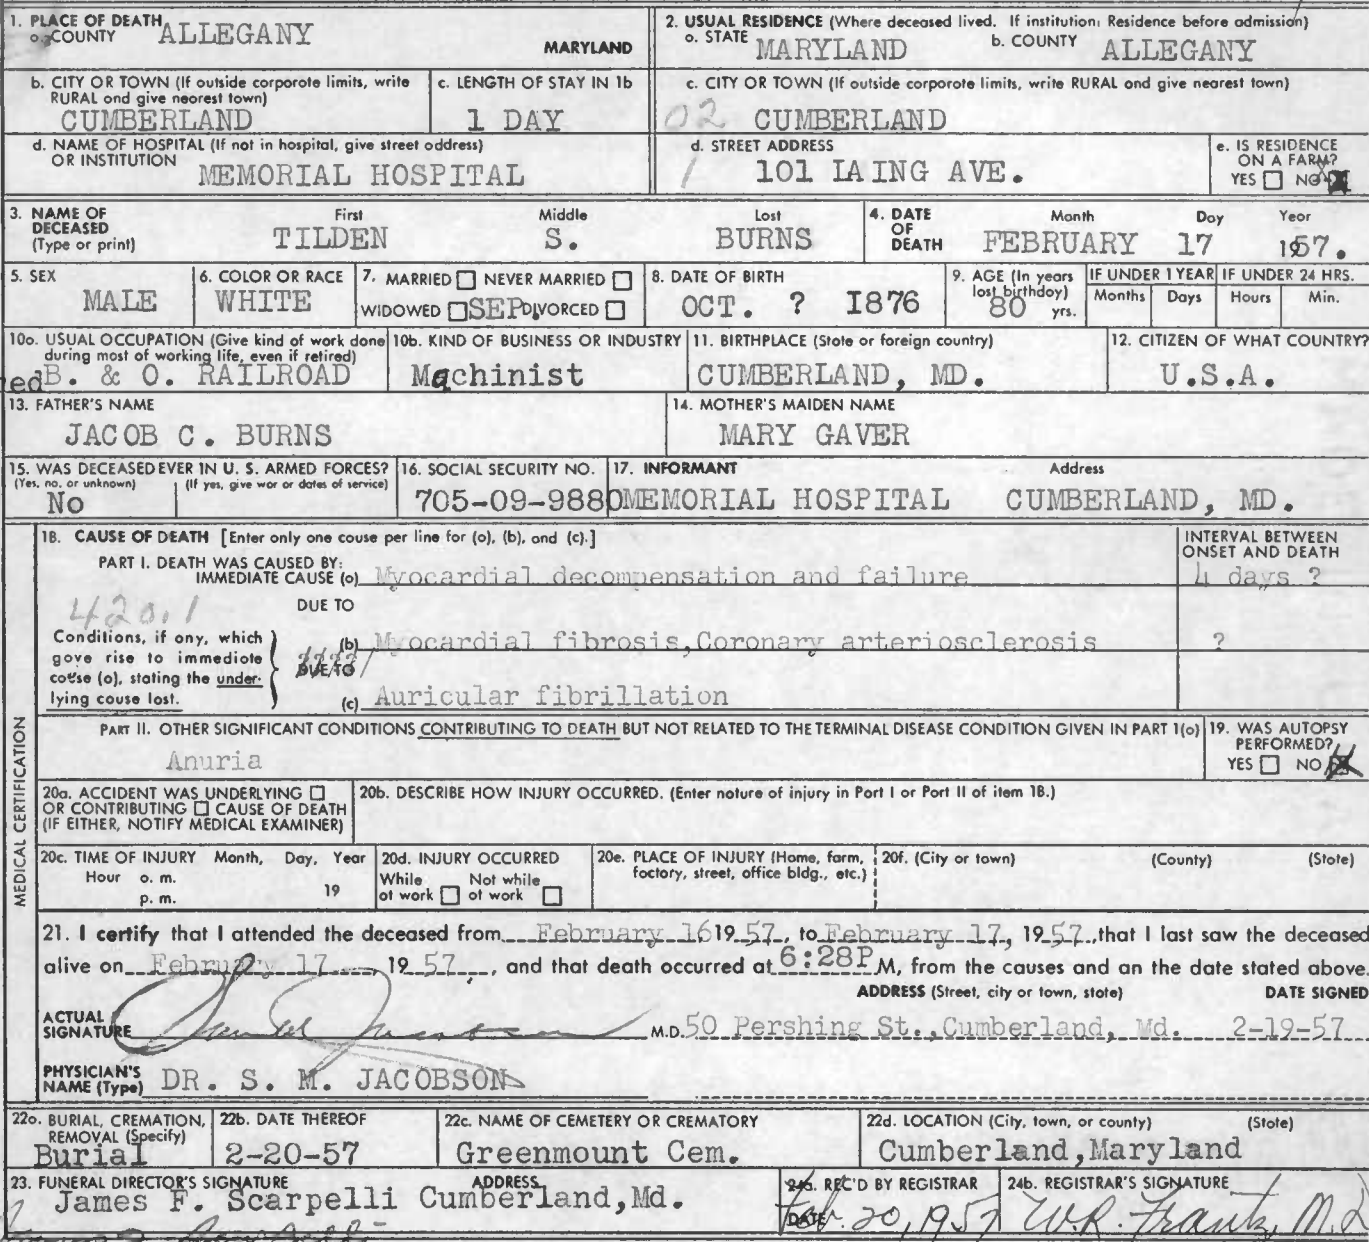 1. PLACE OF DEATH
a. COUNTY ALLEGANY MARYLAND
2. USUAL RESIDENCE (Where deceased lived. If institution: Residence before admission)
a. STATE MARYLAND b. COUNTY ALLEGANY
b. CITY OR TOWN (If outside corporate limits, write RURAL and give nearest town)
CUMBERLAND
c. LENGTH OF STAY IN 1b
1 DAY
c. CITY OR TOWN (If outside corporate limits, write RURAL and give nearest town)
02 CUMBERLAND
d. NAME OF HOSPITAL (If not in hospital, give street address)
OR INSTITUTION MEMORIAL HOSPITAL
d. STREET ADDRESS
1 101 LAING AVE.
e. IS RESIDENCE ON A FARM?
YES NO
3. NAME OF DECEASED (Type or print)
First Middle Last
TILDEN S. BURNS
4. DATE OF DEATH
Month Day Year
FEBRUARY 17 1957.
5. SEX
MALE
6. COLOR OR RACE
WHITE
7. MARRIED NEVER MARRIED
WIDOWED SEP DIVORCED
8. DATE OF BIRTH
OCT. ? I876
9. AGE (In years last birthday)
80 yrs.
IF UNDER 1 YEAR
Months Days
IF UNDER 24 HRS.
Hours Min.
10a. USUAL OCCUPATION (Give kind of work done during most of working life, even if retired)
ed B. & O. RAILROAD
10b. KIND OF BUSINESS OR INDUSTRY
Machinist
11. BIRTHPLACE (State or foreign country)
CUMBERLAND, MD.
12. CITIZEN OF WHAT COUNTRY?
U.S.A.
13. FATHER'S NAME
JACOB C. BURNS
14. MOTHER'S MAIDEN NAME
MARY GAVER
15. WAS DECEASED EVER IN U. S. ARMED FORCES?
(Yes, no, or unknown) (If yes, give war or dates of service)
No
16. SOCIAL SECURITY NO.
705-09-9880
17. INFORMANT Address
MEMORIAL HOSPITAL CUMBERLAND, MD.
18. CAUSE OF DEATH [Enter only one cause per line for (a), (b), and (c).]
INTERVAL BETWEEN ONSET AND DEATH
PART I. DEATH WAS CAUSED BY:
IMMEDIATE CAUSE (a) Myocardial decompensation and failure 4 days ?
420.1
DUE TO
Conditions, if any, which gave rise to immediate cause (a), stating the underlying cause last.
(b) Myocardial fibrosis,Coronary arteriosclerosis ?
DUE TO
(c) Auricular fibrillation
PART II. OTHER SIGNIFICANT CONDITIONS CONTRIBUTING TO DEATH BUT NOT RELATED TO THE TERMINAL DISEASE CONDITION GIVEN IN PART 1(a)
Anuria
19. WAS AUTOPSY PERFORMED?
YES NO
MEDICAL CERTIFICATION
20a. ACCIDENT WAS UNDERLYING
OR CONTRIBUTING CAUSE OF DEATH
(IF EITHER, NOTIFY MEDICAL EXAMINER)
20b. DESCRIBE HOW INJURY OCCURRED. (Enter nature of injury in Part I or Part II of item 18.)
20c. TIME OF INJURY Month, Day, Year
Hour a. m.
p. m. 19
20d. INJURY OCCURRED
While at work Not while at work
20e. PLACE OF INJURY (Home, farm, factory, street, office bldg., etc.)
20f. (City or town) (County) (State)
21. I certify that I attended the deceased from February 16 1957, to February 17, 1957, that I last saw the deceased
alive on February 17, 1957, and that death occurred at 6:28P M, from the causes and on the date stated above.
ADDRESS (Street, city or town, state) DATE SIGNED
ACTUAL SIGNATURE M.D. 50 Pershing St.,Cumberland, Md. 2-19-57
PHYSICIAN'S NAME (Type) DR. S. M. JACOBSON
22a. BURIAL, CREMATION, REMOVAL (Specify)
Burial
22b. DATE THEREOF
2-20-57
22c. NAME OF CEMETERY OR CREMATORY
Greenmount Cem.
22d. LOCATION (City, town, or county) (State)
Cumberland,Maryland
23. FUNERAL DIRECTOR'S SIGNATURE ADDRESS
James F. Scarpelli Cumberland,Md.
24a. REC'D BY REGISTRAR
DATE Feb. 20, 1957
24b. REGISTRAR'S SIGNATURE
W.R. Frantz, M.D.